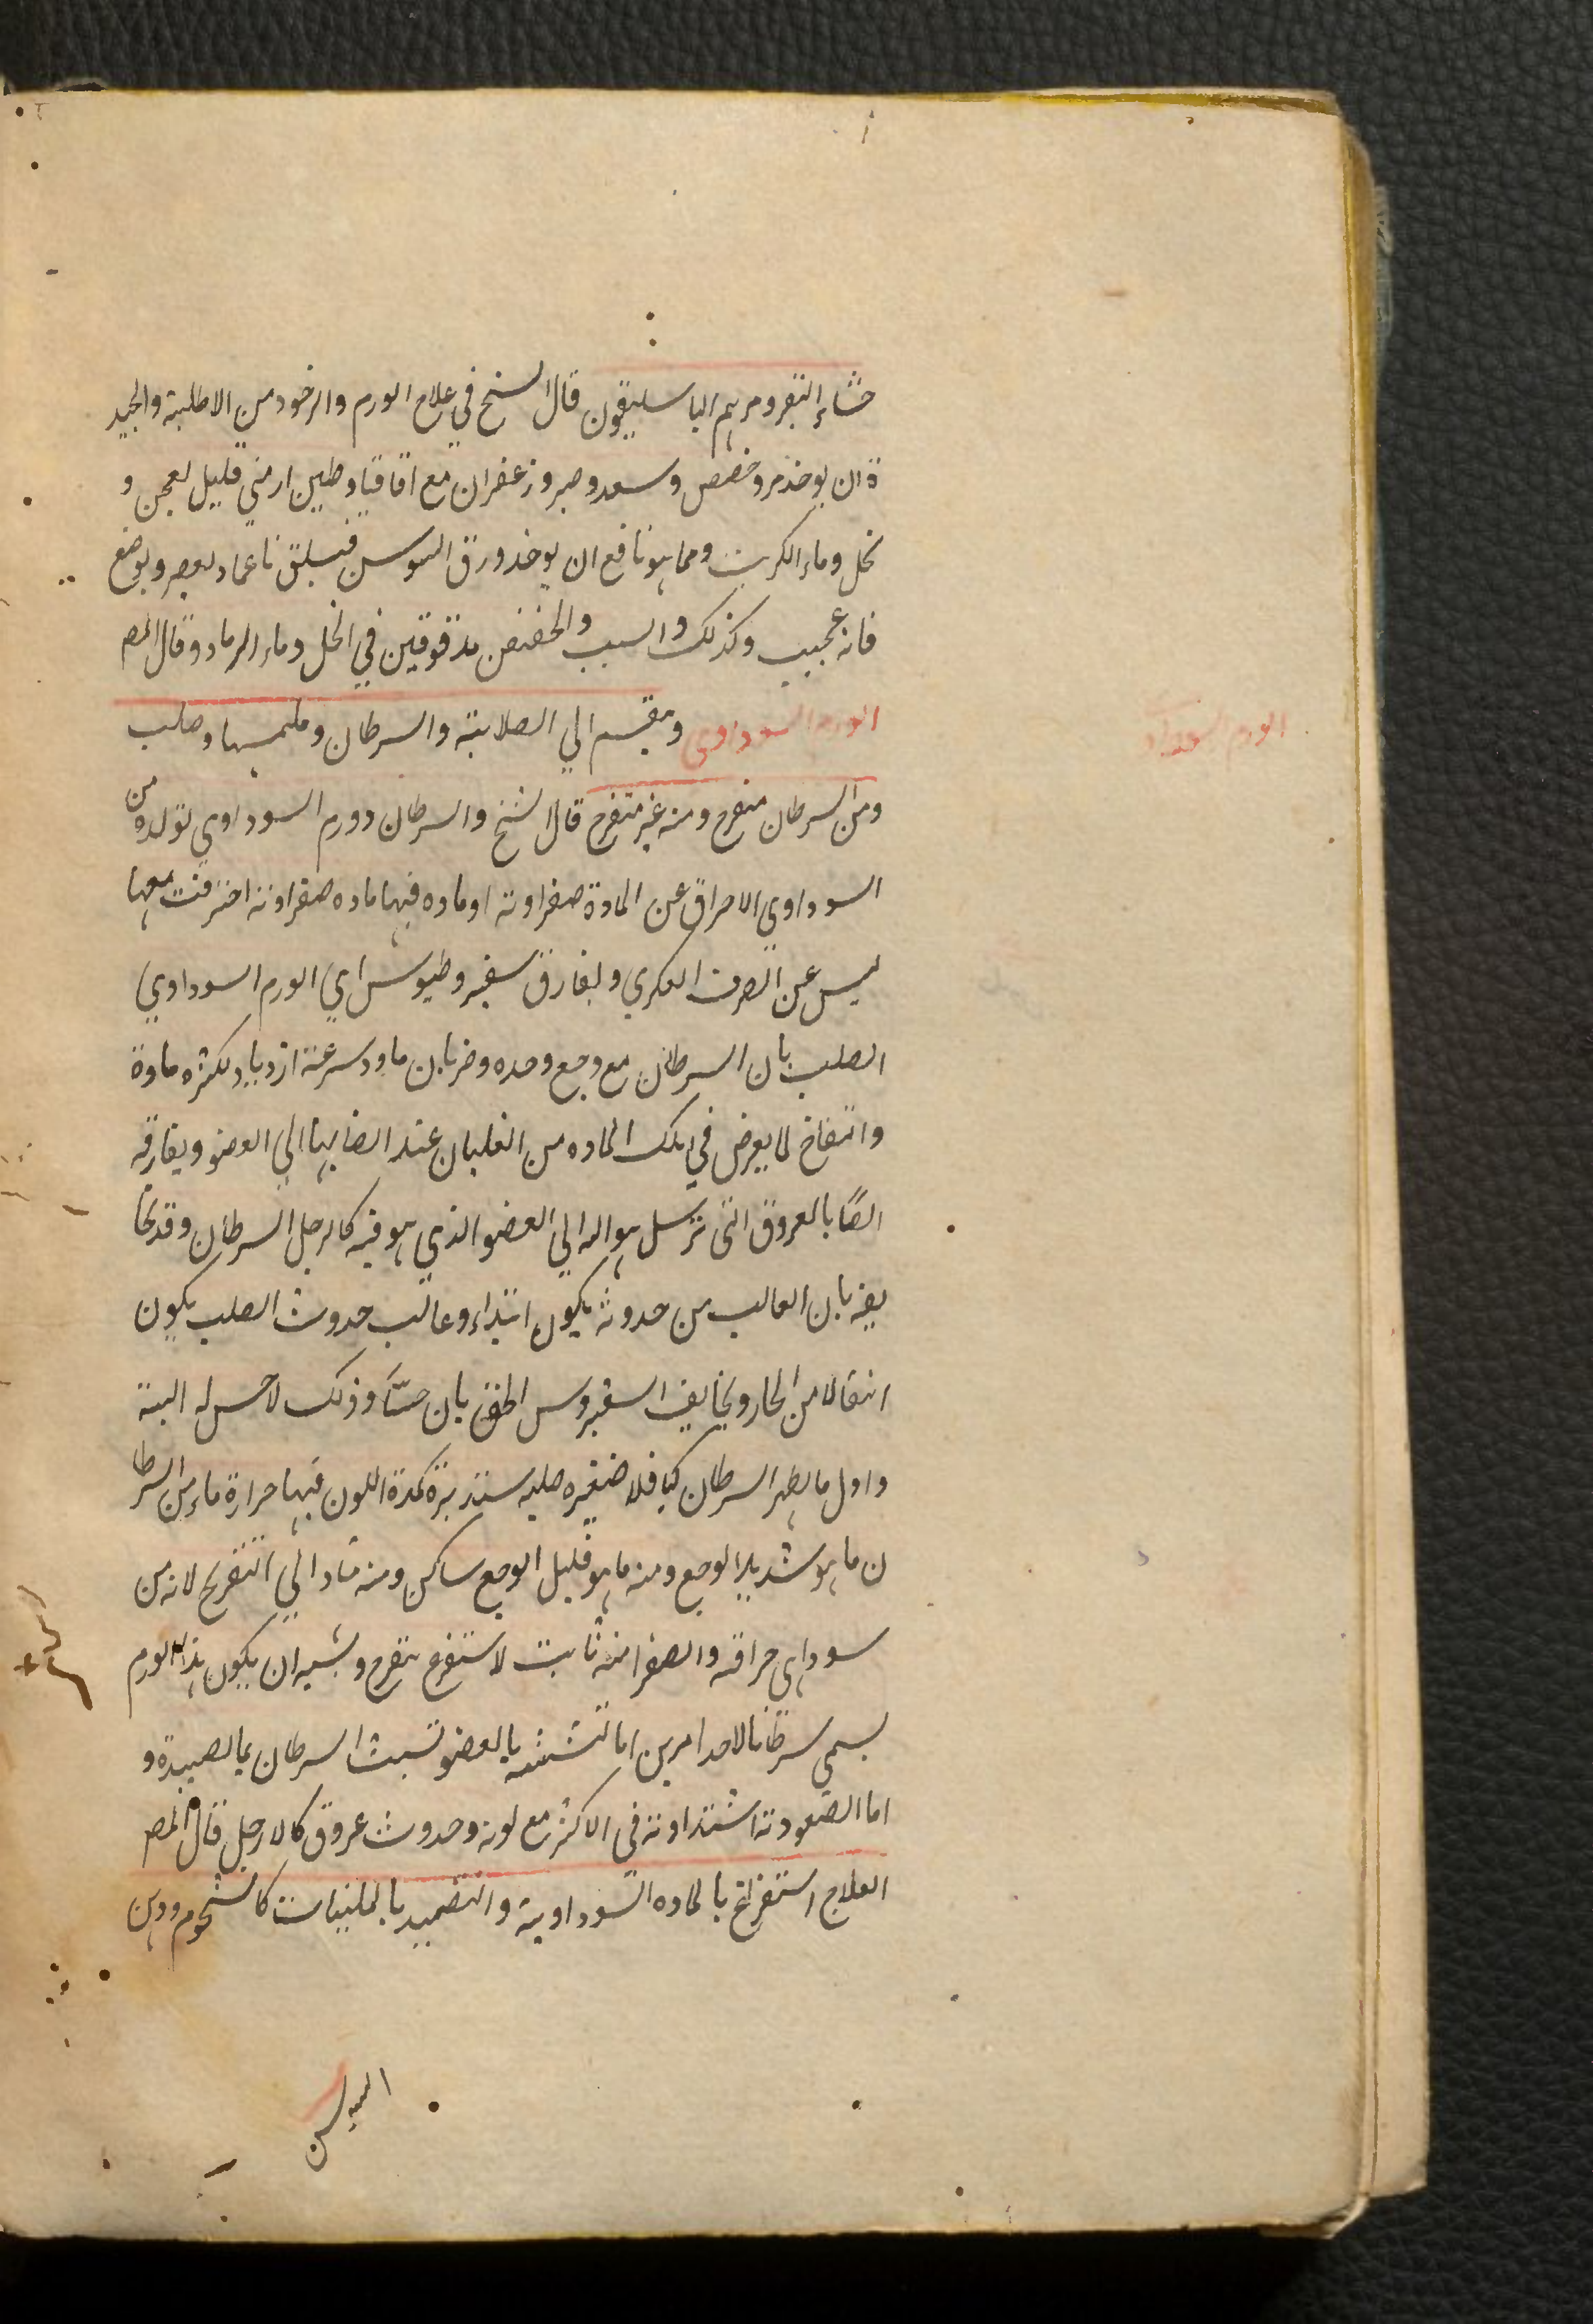 خثاء البقر ومرهم الباسليقون قال الشيخ في علاج الورم والرخود من الاطلية والجيد
ة ان يوخذ مر وخصص وسعد وصبر وزعفران مع اقاقيا وطين ارمني قليل لعجن و
نخل وماء الكرنب ومما هو نافع ان يوخذ ورق السوسن فيسلق ناعما ويعصر ويوضع
فانه عجيب وكذلك والسبب والحضض مدقوقين في الخل وماء الرماد وقال المص
الورم السوداوى وينقسم الي الصلابة والسرطان و وصلب
ومن السرطان متقرح ومنه غير متقرح قال الشيخ والسرطان دورم السوداوي تولده من
السوداوي الاحراق عن المادة صفراوية او ماده فيها ماده صفراوية احترقت معها
ليس عن الصرف العكري ويفارق سقيروطيوس اي الورم السوداوي
الصلب بان السرطان مع وجع وحده وضربان ما وسرعة ازدياد لكثره مادة
وانتفاخ لما يعرض في تلك الماده من الغليان عند انصابها الي العضو ويفارقه
ايضًا بالعروق التى ترسل حواله الي العضو الذي هو فيه كالرجل السرطان وقد
يفر بان الغالب من حدوثه يكون ابتداء وغالب حدوث الصلب يكون
انتقالا من الحار ويخالف السقيروس بان حسًّا وذلك لا حس له البتة
واول ما يظهر السرطان كباقلا صغيره صلبه ستديرة كمدة اللون فيها حرارة ما ومن السرطا
ن ما هو شديد الوجع ومنه ما هو قليل الوجع ساكن ومنه متاد الي التقريح لانه من
سوداى حراقه والصفرا منه ثابت لا ستقرح يتقرح ويشبه ان يكون هذا الورم
يسمي سرطانا لاحد امرين اما لتشبثه بالعضو تشبث السرطان بما لصيده و
اما الصعودته اشتداوته فى الاكثر مع لونه وحدوث عروق كالارجل قال المص
العلاج استفراغ بالماده السوداوية والتضميد بالملينات كالشحوم ودهن